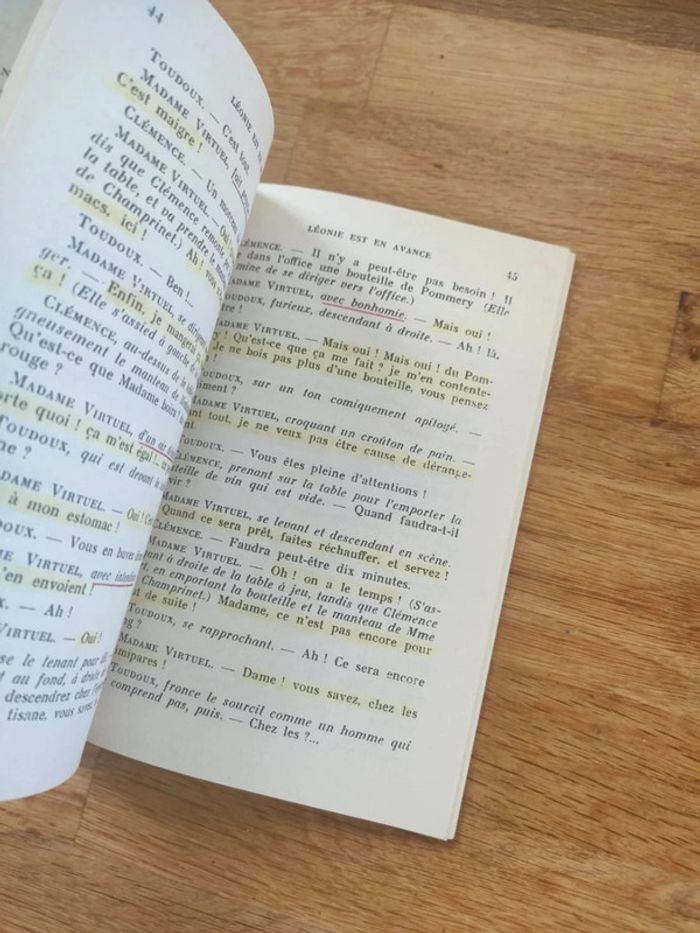 44
LÉONIE EST EN
TOUDOUX. — C'est tout
MADAME VIRTUEL,
C'est maigre !
CLÉMENCE. — Un morceau
MADAME VIRTUEL. — Oui !
dis que Clémence remonte
la table, et va prendre le
de Champrinet.) Ah ! vous
macs, ici !
TOUDOUX. — Ben !..
MADAME VIRTUEL, se
ger. — Enfin, je mangerai
ça ! (Elle s'assied à gauche de
CLÉMENCE, au-dessus de
gneusement le manteau de
Qu'est-ce que Madame boira ?
rouge ?
MADAME VIRTUEL, d'un air
porte quoi ! ça m'est égal !..
TOUDOUX, qui est devant
MADAME VIRTUEL. — Oui !
à mon estomac !
— Vous en buvez
VIRTUEL, avec
envoient !
— Ah !
VIRTUEL. — Oui !
se le tenant pour
au fond, à droite
descendrez chez
tisane, vous savez
LÉONIE EST EN AVANCE
45
CLÉMENCE. — Il n'y a peut-être pas besoin ! Il
dans l'office une bouteille de Pommery (Elle
mine de se diriger vers l'office.)
MADAME VIRTUEL, avec bonhomie. — Mais oui !
TOUDOUX, furieux, descendant à droite. — Ah ! là.
MADAME VIRTUEL. — Mais oui ! Mais oui ! du Pom-
! Qu'est-ce que ça me fait ? je m'en contente-
! Je ne bois pas plus d'une bouteille, vous pensez
TOUDOUX, sur un ton comiquement apitoyé. —
MADAME VIRTUEL, croquant un croûton de pain. —
tout, je ne veux pas être cause de dérange-
TOUDOUX. — Vous êtes pleine d'attentions !
CLÉMENCE, prenant sur la table pour l'emporter la
bouteille de vin qui est vide. — Quand faudra-t-il
MADAME VIRTUEL, se levant et descendant en scène.
Quand ce sera prêt, faites réchauffer, et servez !
CLÉMENCE. — Faudra peut-être dix minutes.
MADAME VIRTUEL. — Oh ! on a le temps ! (S'as-
à droite de la table à jeu, tandis que Clémence
en emportant la bouteille et le manteau de Mme
Champrinet.) Madame, ce n'est pas encore pour
de suite !
TOUDOUX, se rapprochant. — Ah ! Ce sera encore
MADAME VIRTUEL. — Dame ! vous savez, chez les
TOUDOUX, fronce le sourcil comme un homme qui
comprend pas, puis. — Chez les ?...